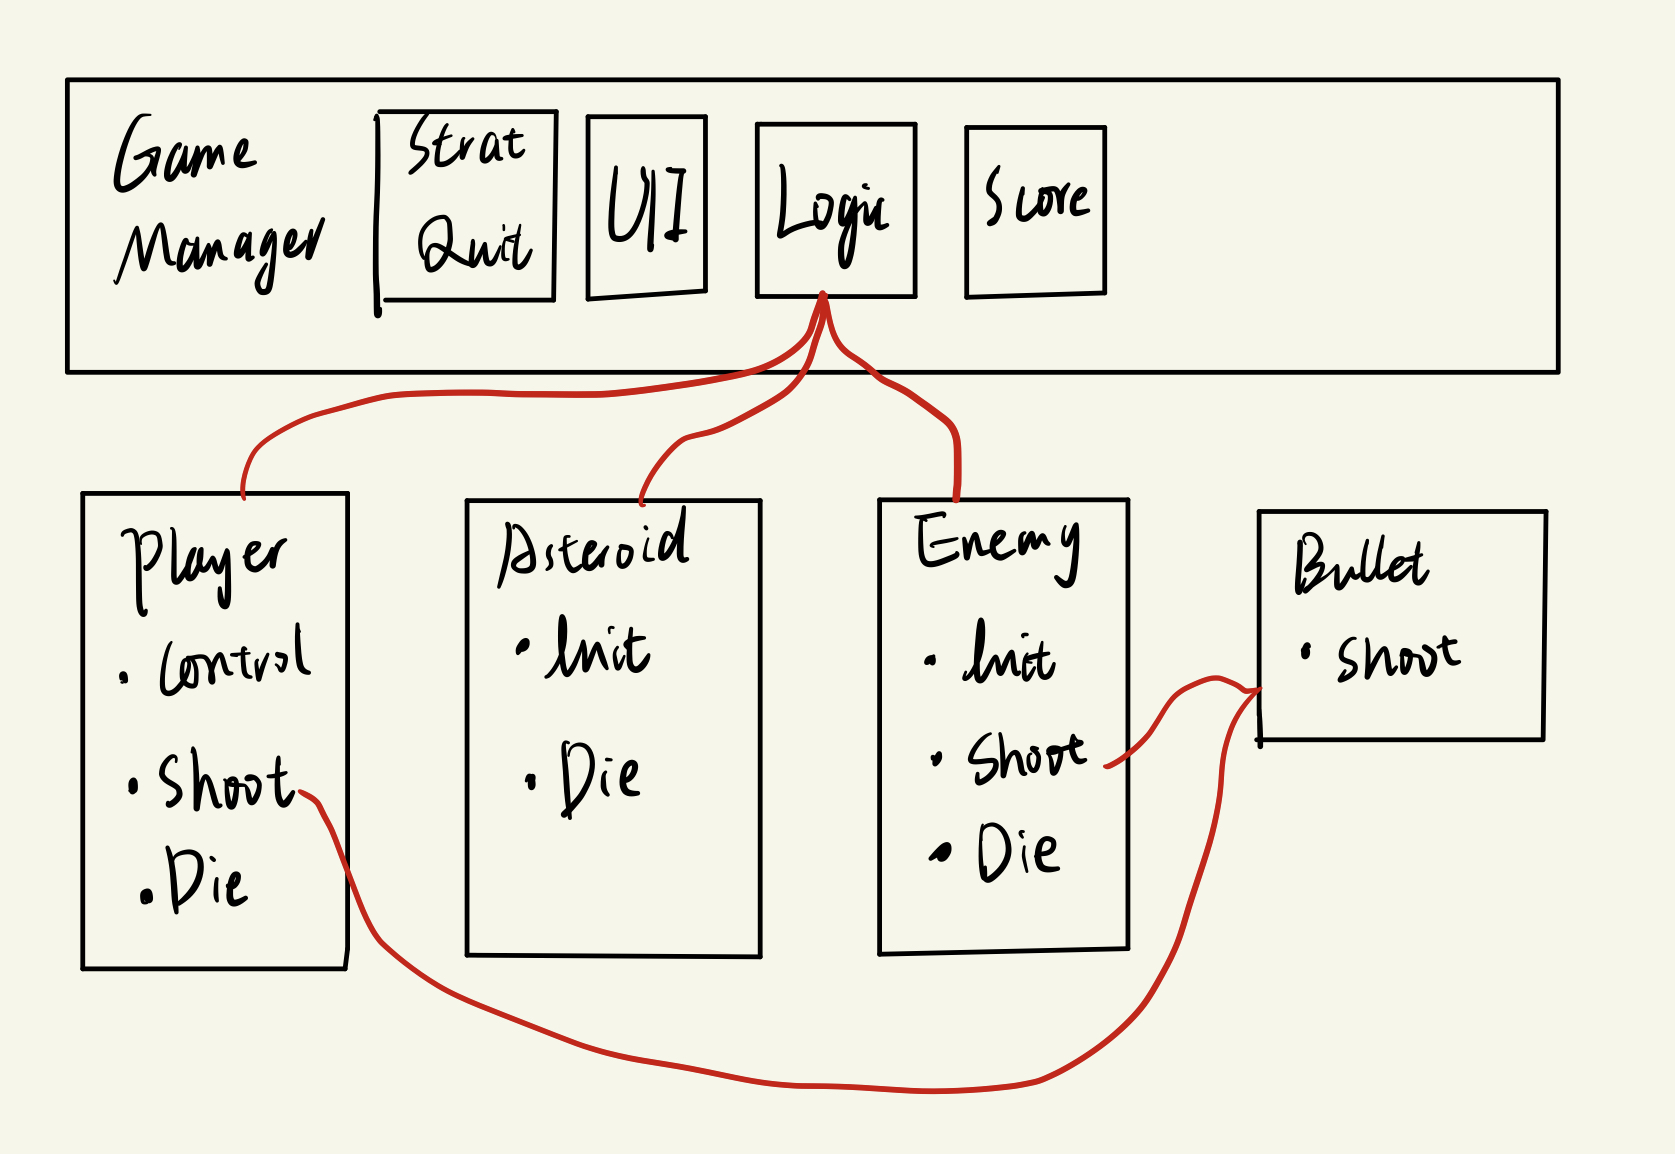 Game
Manager
Strat
Quit
UI
Logic
Score
Player
• Control
• Shoot
• Die
Asteroid
• Init
• Die
Enemy
• Init
• Shoot
• Die
Bullet
• Shoot